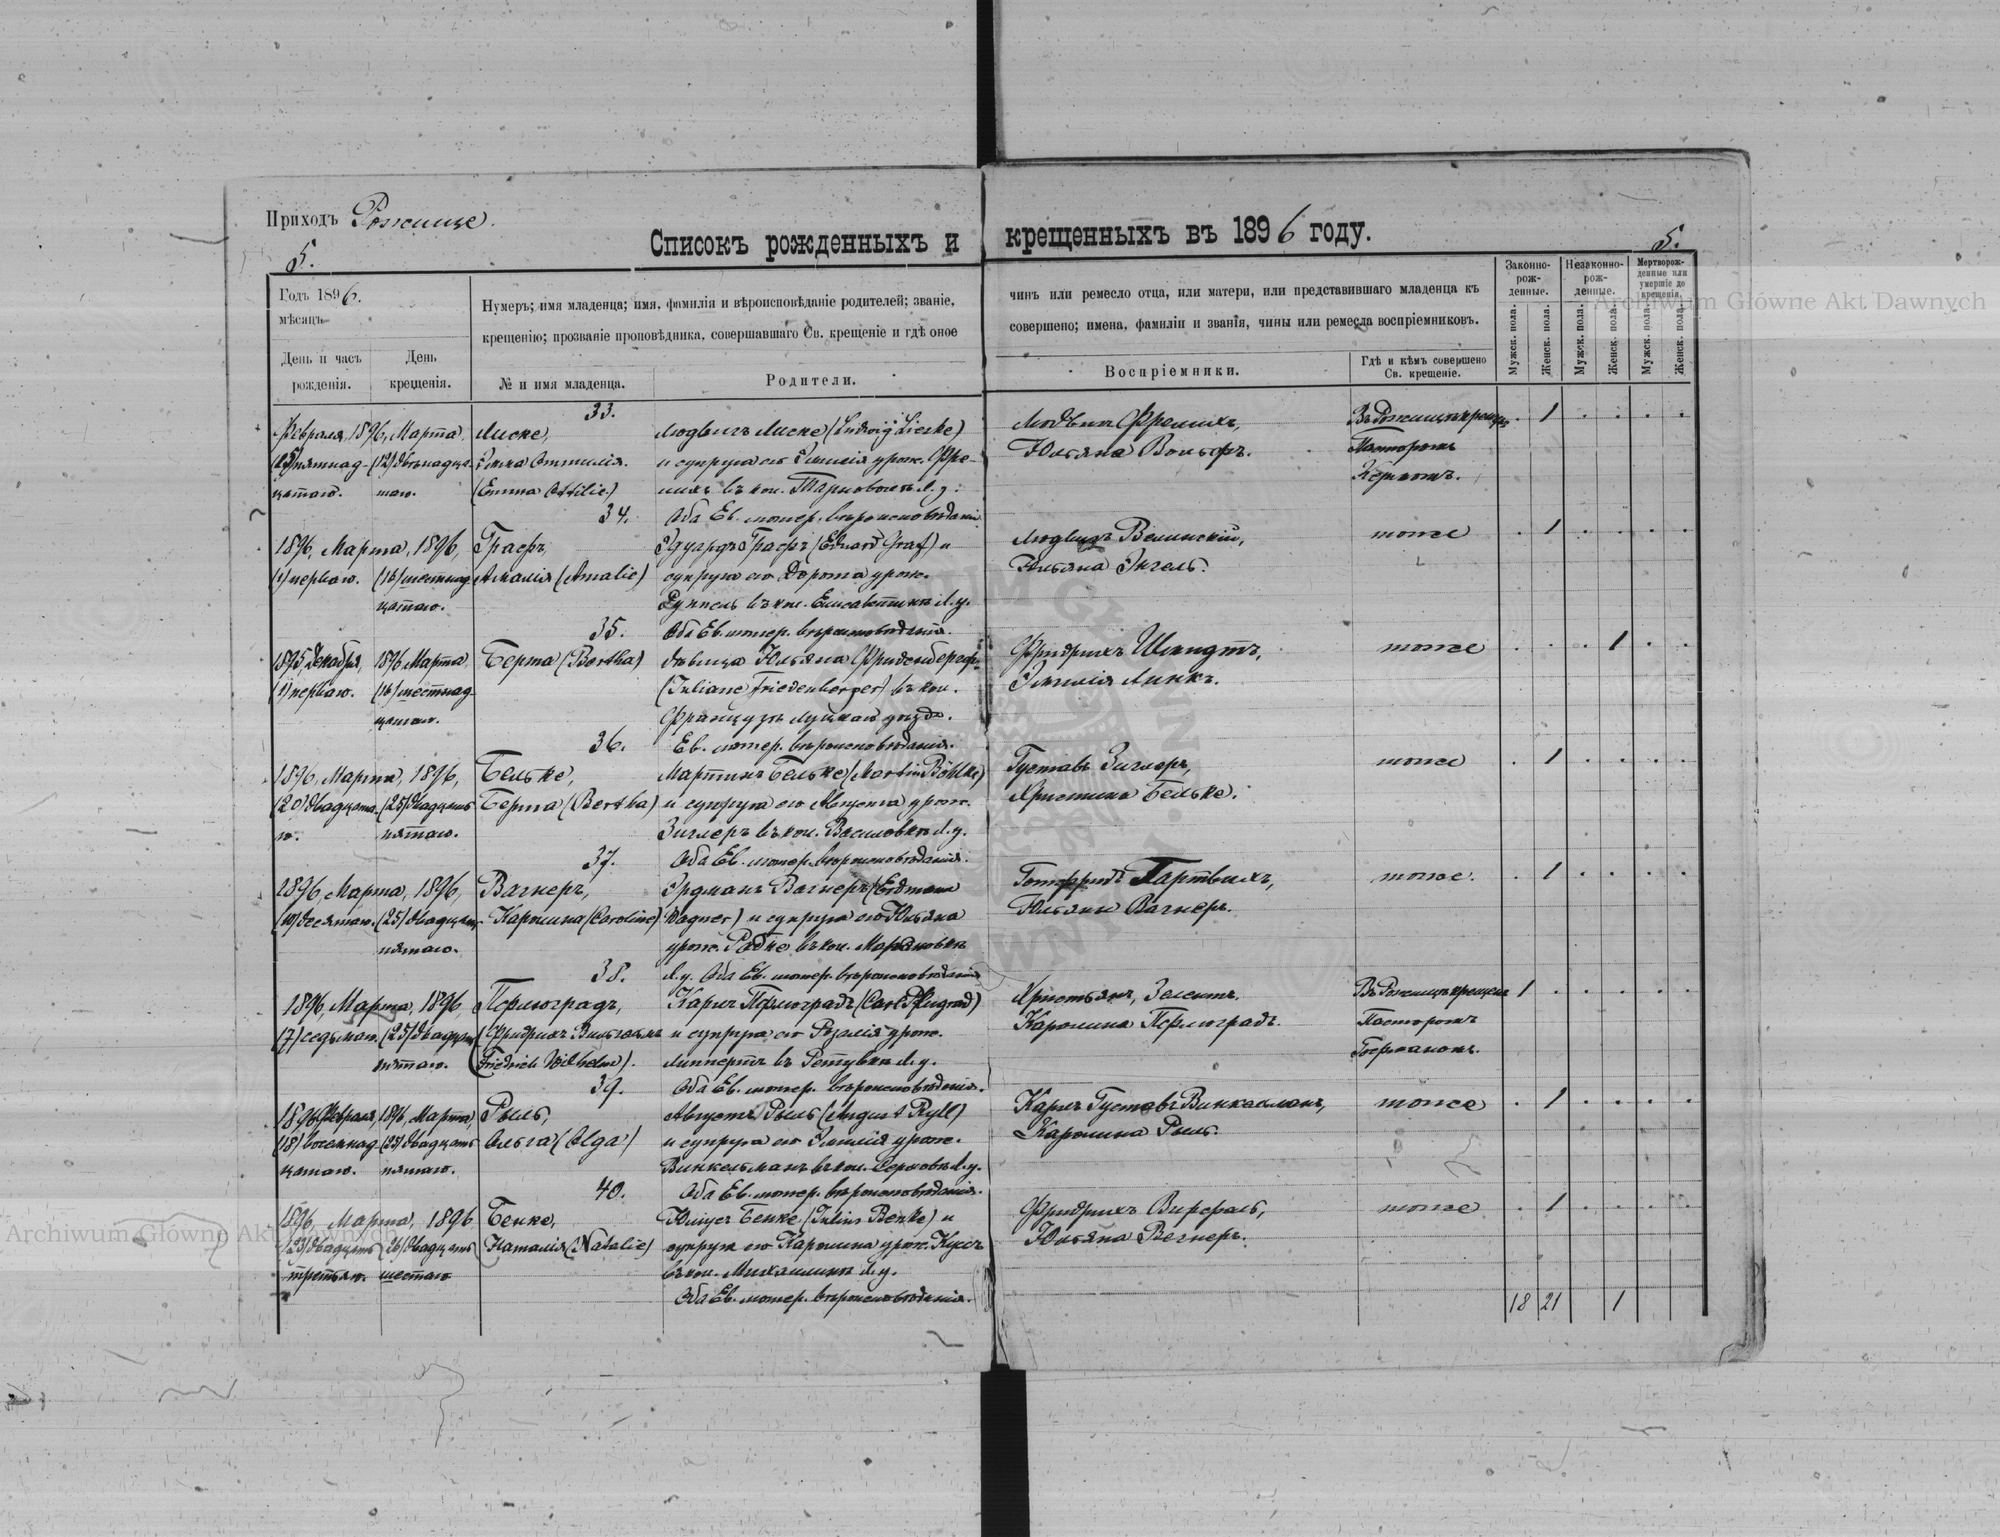 Приходъ Рожище.
Списокъ рожденныхъ и крещенныхъ въ 1896 году.
5.
5.
Годъ 1896.
мѣсяцъ
День и часъ рожденія.
День крещенія.
Нумеръ; имя младенца; имя, фамилія и вѣроисповѣданіе родителей; званіе,
крещенію; прозваніе проповѣдника, совершавшаго Св. крещеніе и гдѣ оное
№ и имя младенца.
Родители.
чинъ или ремесло отца, или матери, или представившаго младенца къ
совершено; имена, фамиліи и званія, чины или ремесла воспріемниковъ.
Воспріемники.
Гдѣ и кѣмъ совершено Св. крещеніе.
Законно-рож-денные.
Незаконно-рож-денные.
Мертворож-денные или умершіе до крещенія.
Мужск. пола.
Женск. пола.
Мужск. пола.
Женск. пола.
Мужск. пола.
Женск. пола.
Archiwum Główne Akt Dawnych
33.
Февраля, 1896, Марта,
(15) пятнад-
цатаго.
(12) двѣнадца-
таго.
Лиске,
Эмма Оттилія.
(Emma Ottilie)
Людвигъ Лиске (Ludwig Lieske)
и супруга его Эмилія урож. Фре-
лихъ въ кол. Тарновокъ Л. у.
Оба Ев. лютер. вѣроисповѣданія
Юльяна Вольфъ.
Въ Рожищѣ крещен
Пасторомъ
1
34.
1896, Марта, 1896,
(1) перваго.
(16) шестнад
цатаго.
Графъ,
Амалія (Amalie)
Эдуардъ Графъ (Eduard Graf) и
супруга его Дорота урож.
въ кол. Елисаветинъ Л. у.
Оба Ев. лютер. вѣроисповѣданія.
Людвигъ Велинскій,
Юльяна Энгель.
тоже
1
35.
1895, Декабря,
(1) перваго.
1896 Марта,
(16) шестнад
цатаго.
Берта (Bertha)
дѣвица Юльяна Фриденбергеръ
(Juliane Friedenberger) въ кол.
Французъ Луцкаго уѣзда.
Ев. лютер. вѣроисповѣданія.
Фридрихъ Шмидтъ,
Эмилія Линкъ.
тоже
1
36.
1896, Марта, 1896,
(20) двадцата-
го.
(25) двадцать
пятаго.
Бельке,
Берта (Bertha)
Мартинъ Бельке (Martin Böhlke)
и супруга его Августа урож.
Зиглеръ въ кол. Василовка Л. у.
Оба Ев. лютер. вѣроисповѣданія.
Густавъ Зиглеръ,
Христина Бельке.
тоже
1
37.
1896, Марта, 1896,
(10) десятаго.
(25) двадцать
пятаго.
Вагнеръ,
Каролина (Caroline)
Эрдманъ Вагнеръ (Erdmann
Wagner) и супруга его Юльяна
урож. Радке въ кол. Маряновка
Л. у. Оба Ев. лютер. вѣроисповѣданія
Готфридъ Гартвихъ,
Юльяна Вагнеръ.
тоже.
1
38.
1896, Марта, 1896,
(7) седьмаго.
(25) двадцать
пятаго.
Пфлюградъ,
Фридрихъ Вильгельмъ
(Friedrich Wilhelm).
Карлъ Пфлюградъ (Carl Pflugrad)
и супруга его Розалія урож.
Липпертъ въ Л. у.
Оба Ев. лютер. вѣроисповѣданія.
Христьянъ Зелентъ.
Каролина Пфлюградъ.
Въ Рожищѣ крещенъ
Пасторомъ
1
39.
1896, Февраля,
(18) восемнад
цатаго.
1896, Марта,
(25) двадцать
пятаго.
Рыль,
Ольга (Olga)
Августъ Рыль (August Ryll)
и супруга его Эмилія урож.
Винкельманъ въ кол. Л. у.
Оба Ев. лютер. вѣроисповѣданія.
Карлъ Густавъ Винкельманъ,
Каролина Рыль.
тоже
1
40.
1896, Марта, 1896
(23) двадцать
третьяго.
(26) двадцать
шестаго
Бенке,
Наталія (Natalie)
Юліусъ Бенке (Julius Benke) и
супруга его Каролина урож. Куссъ
въ кол. Михаилинъ Л. у.
Оба Ев. лютер. вѣроисповѣданія.
Юльяна Вегнеръ.
тоже
1
18 21 1
Archiwum Główne Akt Dawnych